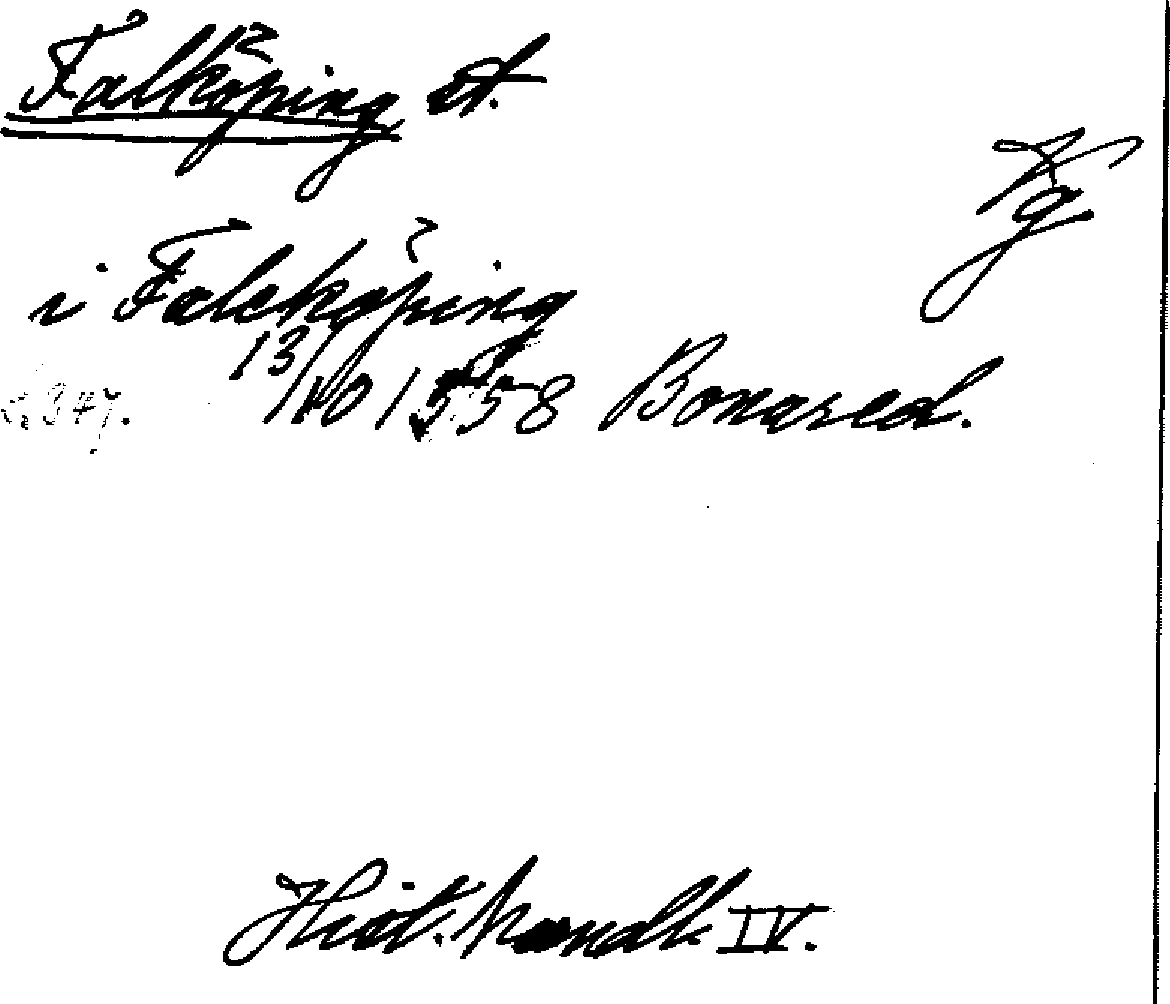 Falköping st.
Kg
i Faleköping
13/10 1558 Bonared.
s. 347.
Hist. handl. IV.